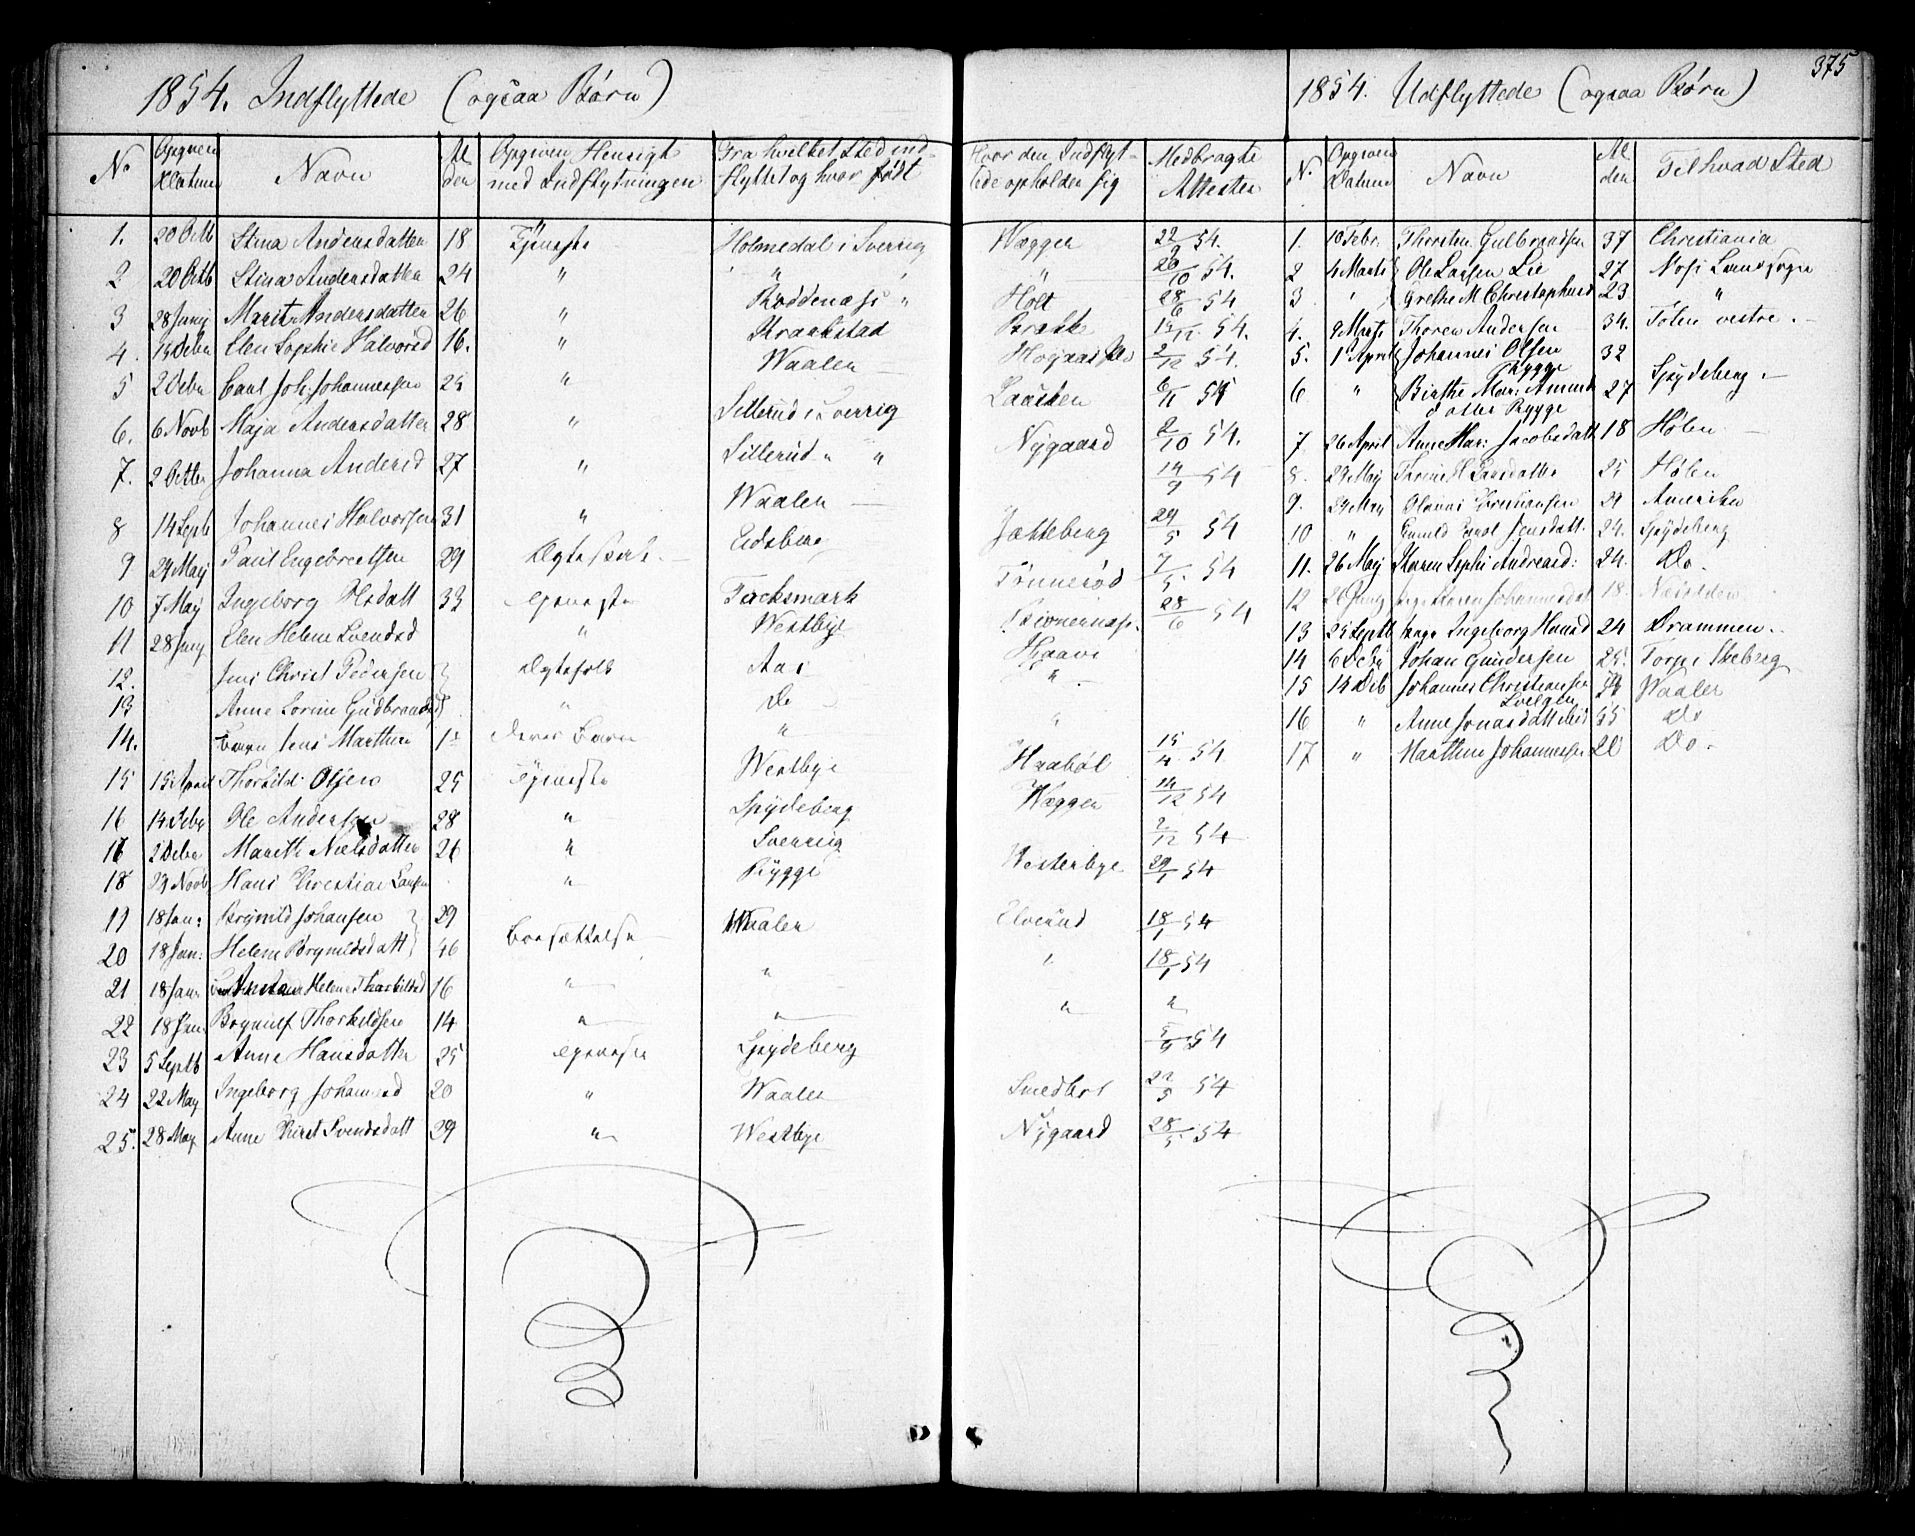 375
1854. Indflyttede (ogsaa Børn)
1854. Udflyttede (ogsaa Børn)
No Opgiven Datum Navn Alden Opgiven Hensigt med Indflytningen Fra hvilket Sted indflyttet og hvor født Hvor den Indflyttede opholder sig Medbragte Attester
1. 20 Octb Stina Andersdatten 18 Tjeneste Holmedal i Sverrig Vægger 22/9 54.
2 20 Octb Stina Andersdatten 24 " " " " 20/10 54.
3 28 Junij Marit Andersdatten 26 " Røddenæss " Holt 28/6 54
4. 13 Debr Elen Sophie Halvorsd 16. " Kraakstad Brække 54.
5 2 Debr Carl Joh. Johannessen 25 " Waalen 2/12 54.
6. 6 Novb Maja Andersdatten 28 " Sillerud i Sverrig Laasken 6/11 54
7. 2 Octbr Johanna Andersd 27 " Sillerud " " Nygaard 2/10 54.
8 14 Septb Johannes Halvorsen 31 " Waalen 14/9 54
9 29 Maij Paul Engebretsen 29 Ægteskab Eidsberg Jatteberg 29/5 54
10 7 Maij Ingeborg Olsdatt 33 Tjeneste Tachsmark Tønnerød 7/5. 54
11 28 Junij Elen Helene Svendsd " Westbye 28/6 54
12. Jens Christ Pedersen Ægtefolk Aas Haave
13 Anne Lorine Gudbrandsd " Do "
14. Barn Jens Marthin 1 deres Barn " "
15 15 April Thorkild Olsen 25 Tjeneste Westbye Haabøl 15/4 54
16 14 Debr Ole Andersen 28 " Spydeberg Wæggen 14/12 54
17 2 Debr Marith Nielsdatten 26 " Sverrig 2/12 54
18 29 Novb Hans Christian Larsen " Rygge Westerbye 29/1 54
19 18 Jan: Brynild Johansen 29 Bosættelse Waaler Elverud 18/1 54
20 18 Jan: Helene Brynildsdatt 46 " 18/1 54
21 18 Jan: Helene Thorkildsd 16 " " " "
22 18 Jan Brynulf Thorkildsen 14 " " 54
23 5 Septb Anne Hansdatter 25 Tjeneste Spydeberg
24 22 May Ingeborg Johannesd 20 " Waaler Smedbøl 22/5 54
25. 28 May Anne Kirst Svendsdatt 29 " Westbye Nygaard 28/5. 54
N. Opgiven Datum Navn Alden Til hvad Sted
1. 10 Febr. Thorsten Gulbrandsen 37 Christiania
2 4 Marts Ole Larsen Lie 27 Moss Landsogn
3 " Grethe M Christophersd 23 "
4. 9 Marts Thoren Andersen 34. Toten vestre.
5. 1 April Johannes Olsen Rygge 32
6 " Birthe Mar: Amundsdatter Rygge 27 Spydeberg
7 26 April Anne Mar: Jacobsdatt 18 Hølen
8. 29 Maij Thrine H Larsdatter 25 Hølen
9. 29 Maij Olaves Christiansen 29 Amerika
10 " Gunild Jensdatt. 24. Spydeberg
11. 26 Maij Karen Sophie Andreasd: 24. Do.
12 Karen Johannesdat 18. Næsodden
13 25 Septb Ingeborg Hansd 24 Drammen.
14 6 Debr Johan Gundersen 25. Torp i Skeberg
15 14 Deb Johannes Christiansen Waaler
16 " Anne Jonasdatt 55 Do
17 " Marthin Johannessen 20 Do.